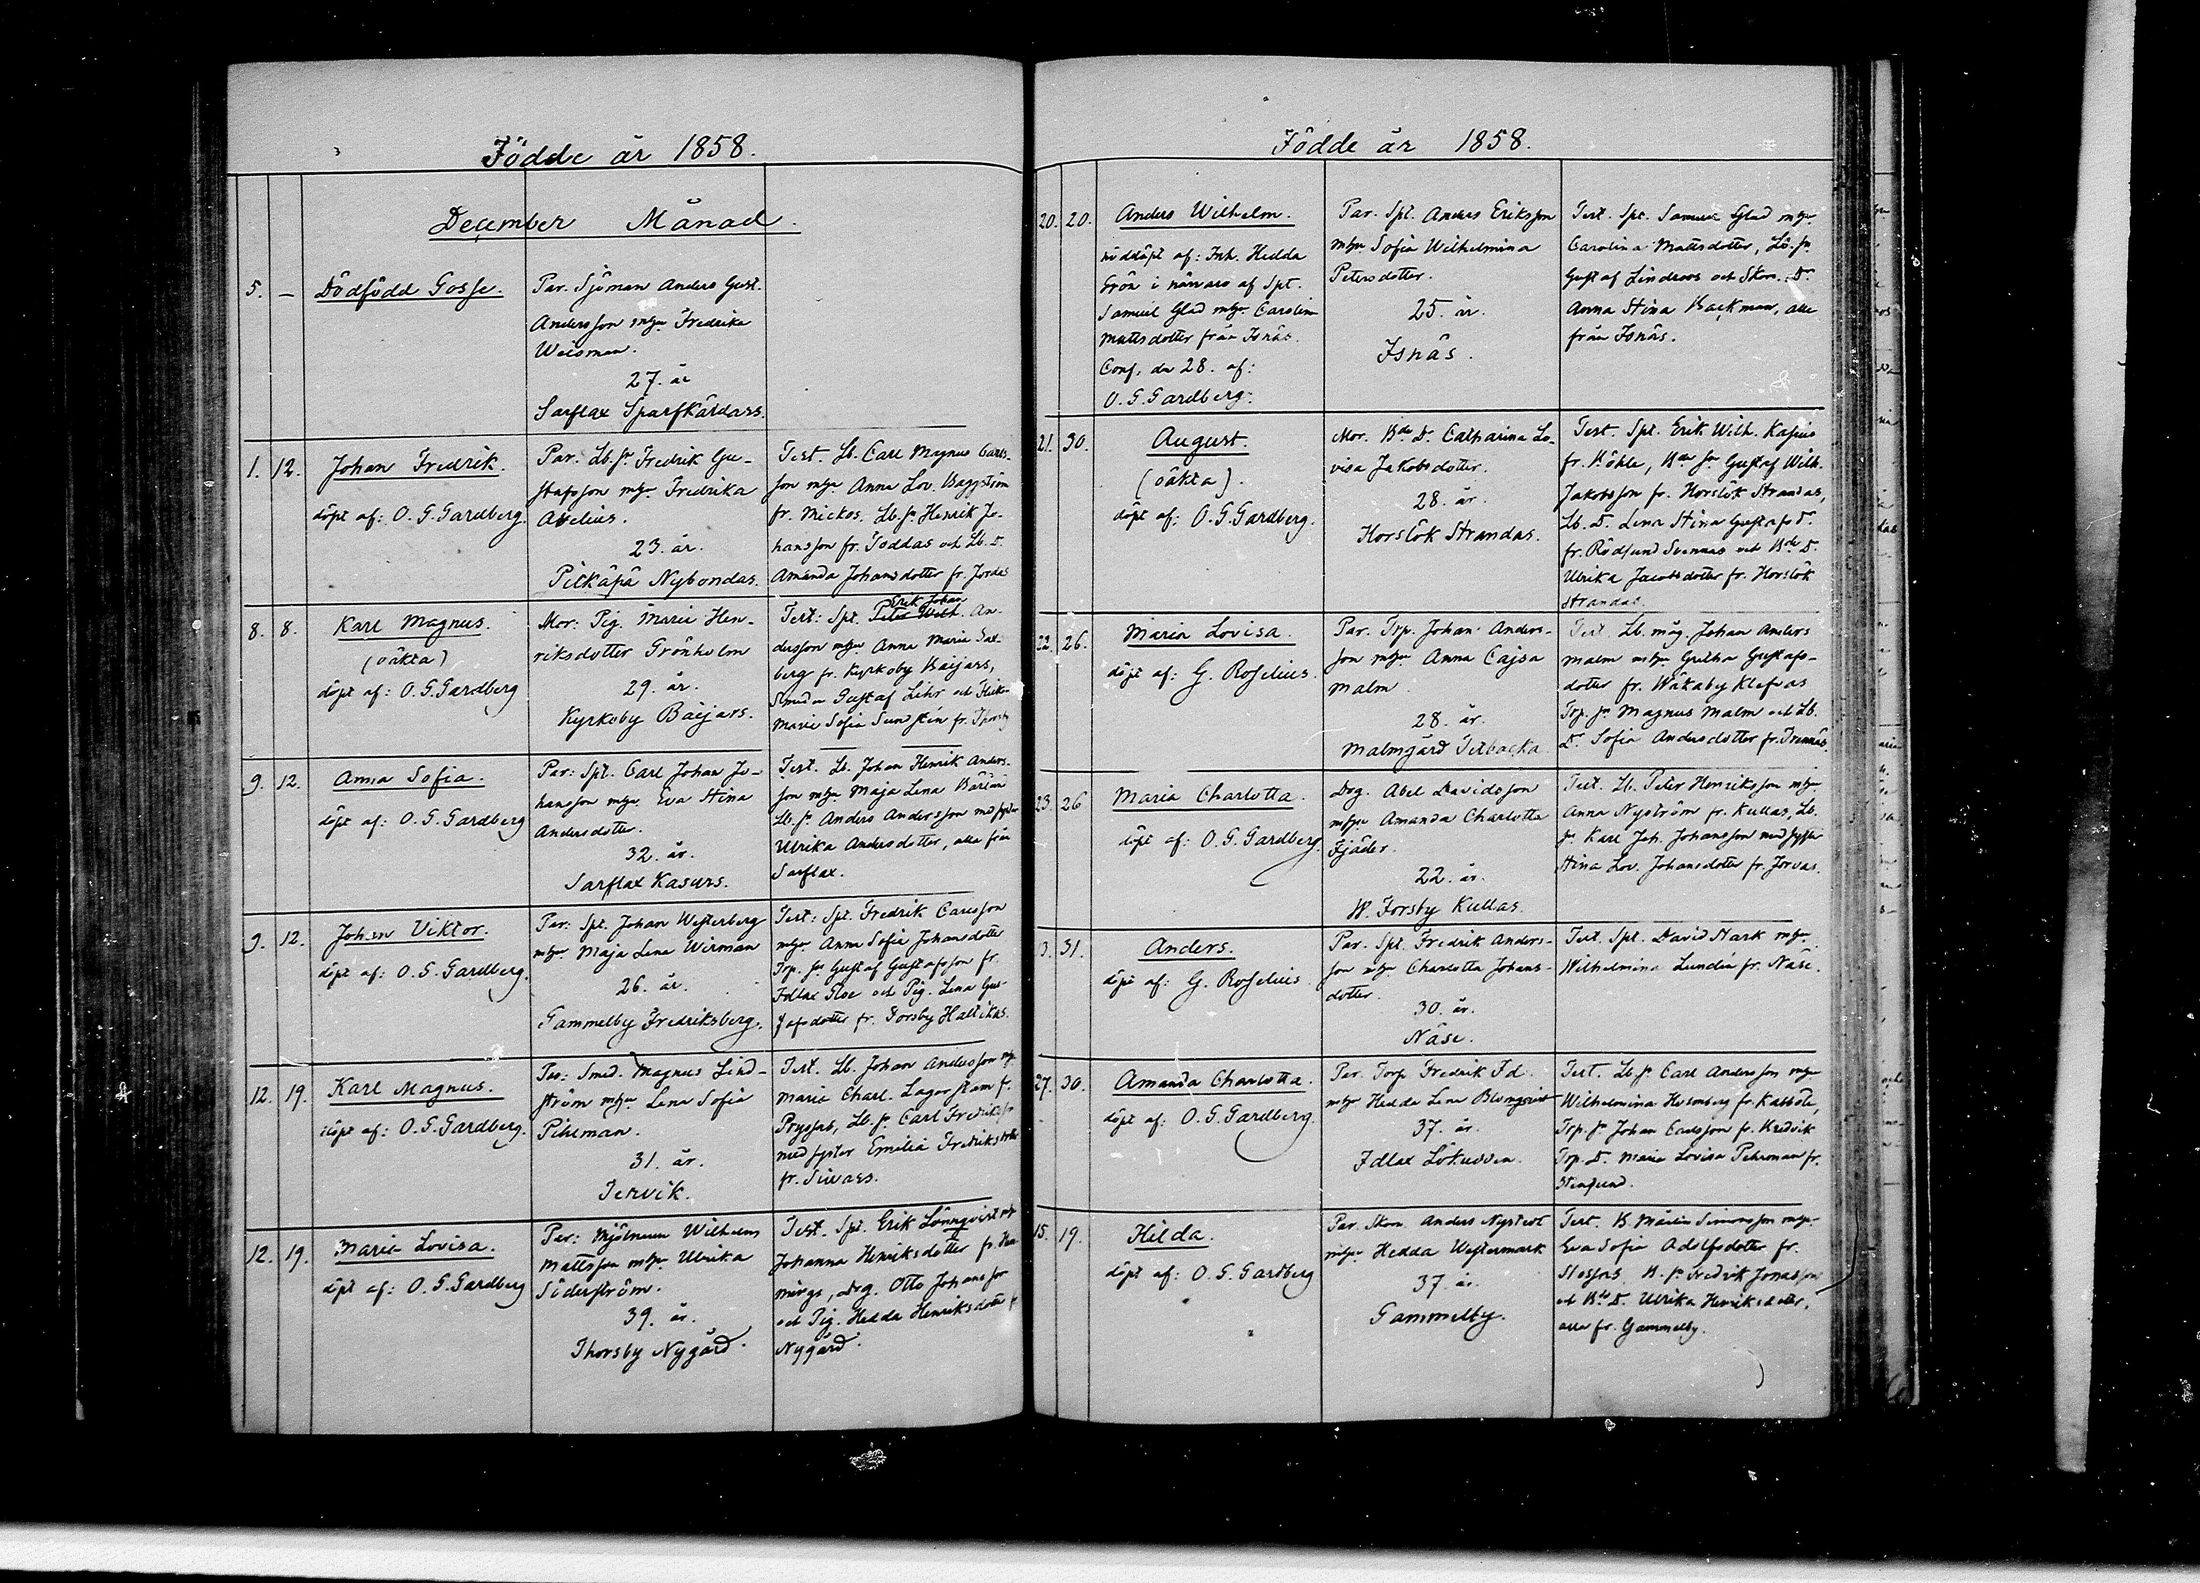 Födde år 1858.
December Månad.
5. — Dödfödd Gosse.
Par. Sjöman Anders Gust.
Andersson mhu Fredrika
Weisman.
27. år
Sarflax Sparfkärdars.
1. 12. Johan Fredrik.
döpt af: O. G. Gardberg.
Par. Lb. sn Fredrik Gu-
stafsson mhu Fredrika
Abelius.
23. år.
Pitkäpä Nybondas.
Test. Lb. Carl Magnus Carls-
son mhu Anna Lov. Baggström
fr. Mickos, Lb. sn Henrik Jo-
hansson fr. Joddas och Lb. D.
Amanda Johansdotter fr. Jordas
8. 8. Karl Magnus.
(oäkta)
döpt af: O. G. Gardberg
Mor: Pig. Maria Hen-
riksdotter Grönholm
29. år.
Kyrkoby Baijars.
Erik Johan
Test: Spt. Peter Wilh. An-
dersson mhu Anna Maria
berg fr. Kyrkoby Baijars,
Gustaf Lihr och
Maria Sofia Sundstén fr. Thorsby
9. 12. Anna Sofia.
döpt af: O. G. Gardberg
Par: Spt. Carl Johan Jo-
hansson mhu Eva Stina
Andersdotter.
32. år.
Sarflax Kasurs.
Test. Lb. Johan Henrik Anders-
son mhu Maja Lena
Lb. sn Anders Andersson med syster
Ulrika Andersdotter, alla från
Sarflax.
9. 12. Johan Viktor.
döpt af: O. G. Gardberg.
Par: Spt. Johan Westerberg
mhu Maja Lena Wirman
26. år.
Gammelby Fredriksberg.
Test: Spt. Fredrik Carlsson
mhu Anna Sofia Johansdotter
Trp. sn Gustaf Gustafsson fr.
Idlax och Pig. Lena Gus-
tafsdotter fr. Forsby Hallikas.
12. 19. Karl Magnus.
döpt af: O. G. Gardberg.
Par: Smed. Magnus Lind-
ström mhu Lena Sofia
Pihlman.
31. år.
Tervik.
Test. Lb. Johan Andersson mhu
Maria Charl. Lagerstam f.
Lb. sn Carl Fredriksson
med syster Emelia Fredriksdotter
fr. Siwars.
12. 19. Maria Lovisa.
döpt af: O. G. Gardberg
Par: Mjölnaren Wilhelm
Mattsson mhu Ulrika
Söderström.
39. år.
Thorsby Nygård.
Test. Spt. Erik Lönnqvist mhu
Johanna Henriksdotter fr.
Drg. Otto Johansson
och Pig. Hedda Henriksdotter f
Nygård.
Födde år 1858.
20. 20. Anders Wilhelm.
nöddöpt af: Inh. Hedda
Grön i närvaro af Spt.
Samuel Glad mhu Carolina
Mattsdotter från Isnäs.
Conf. den 28. af:
O. G. Gardberg.
Par. Spt. Anders Eriksson
mhu Sofia Wilhelmina
Petersdotter.
25. år.
Isnäs.
Test. Spt. Samuel Glad mhu
Carolina Mattsdotter, Lö. sn
Gustaf Lindroos och Skom. D.
Anna Stina Backman, alla
från Isnäs.
21. 30. August.
(oäkta).
döpt af: O. G. Gardberg.
Mor. Bde D. Catharina Lo-
visa Jakobsdotter.
28. år.
Horslök Strandas.
Test. Spt. Erik Wilh. Kasius
fr. Köhle, Bde sn Gustaf Wilh.
Jakobsson fr. Horslök Strandas,
Lb. D. Lena Stina Gustafs D.
fr. Rödsund Svennas och Bde D.
Ulrika Jacobsdotter fr. Horslök
Strandas.
22. 26. Maria Lovisa.
döpt af: G. Roselius.
Par. Trp. Johan Anders-
son mhu Anna Cajsa
Malm
28. år.
Malmgård Tetbacka
Test. Lb. måg. Johan Anders
Malm mhu Gretha Gustafs-
dotter fr. Wåkaby Klefvas
Trp. sn Magnus Malm och Lb.
D. Sofia Andersdotter fr.
23. 26 Maria Charlotta.
döpt af: O. G. Gardberg.
Drg. Abel Davidsson
mhu Amanda Charlotta
Fjäder.
22. år.
W. Forsby Kullas.
Test. Lb. Peter Henriksson mhu
Anna Nyström fr. Kullas, Lb.
sn Karl Joh. Johansson med syster
Stina Lov. Johansdotter fr. Jorvas.
13. 31. Anders.
döpt af: G. Roselius
Par. Spt. Fredrik Anders-
son mhu Charlotta Johans-
dotter.
30. år.
Näse.
Test. Spt. David Stark mhu
Wilhelmina Lundén fr. Näse.
27. 30. Amanda Charlotta.
döpt af: O. G. Gardberg.
Par. Torp Fredrik Id
mhu Hedda Lena Blomqvist
37. år.
Idlax Lökudden.
Test. Lb. sn Carl Andersson mhu
Wilhelmina Holmberg fr. Kabböle,
Trp. sn Johan Carlsson fr. Kredvik
Trp. D. Maria Lovisa Pehrman fr.
Stensund.
15. 19. Hilda.
döpt af: O. G. Gardberg
Par. Skom. Anders Nystedt
mhu Hedda Westermark
37. år.
Gammelby.
Test. B. Mårten Simonsson mhu
Eva Sofia Adolfsdotter fr.
B. sn Fredrik Jonasson
och Bde D. Ulrika Henriksdotter,
alla fr. Gammelby.